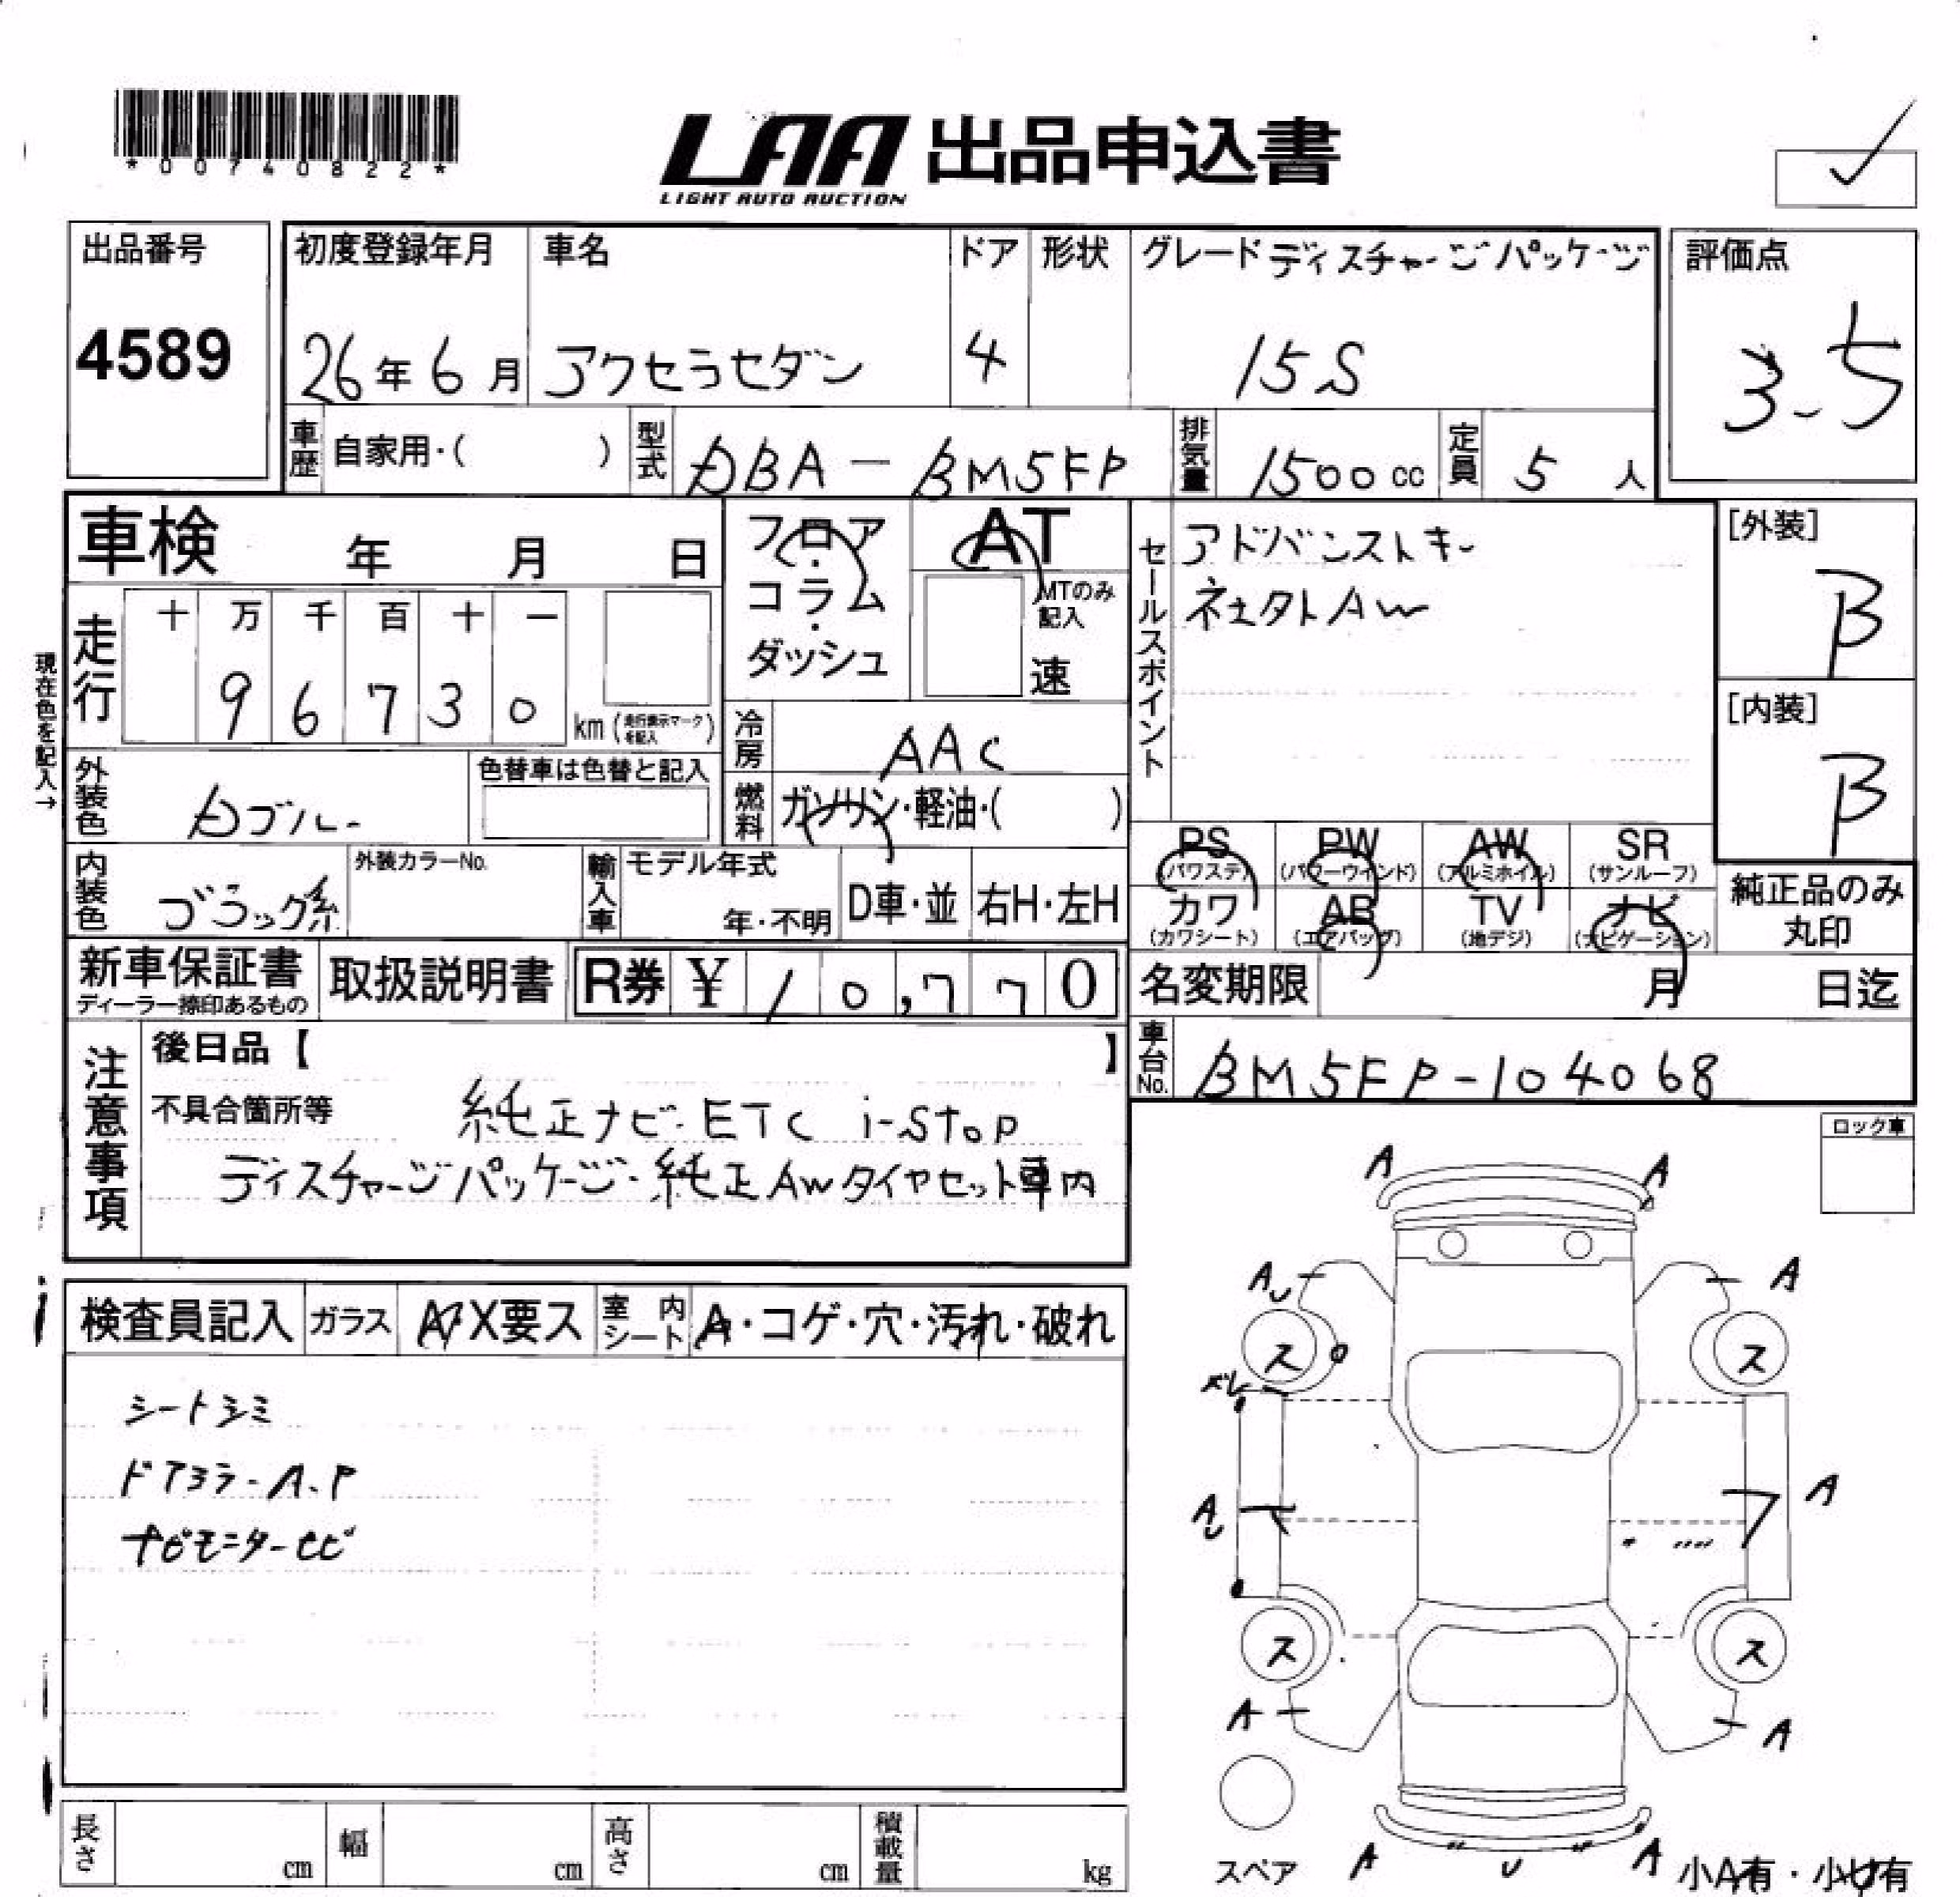 *00740822*
LAA 出品申込書
LIGHT AUTO AUCTION
出品番号
4589
初度登録年月
26年6月
車名
アクセラセダン
ドア
4
形状
グレード ディスチャージパッケージ
15S
評価点
3.5
車歴 自家用・( )
型式 DBA-BM5FP
排気量 1500cc
定員 5人
車検 年 月 日
フロア・コラム・ダッシュ
AT
MTのみ記入
速
セールスポイント
アドバンストキー
社外AW
[外装]
B
[内装]
B
現在色を記入→
走行 十 万 千 百 十 一
9 6 7 3 0
km (走行表示マークを記入)
冷房 AAC
外装色
色替車は色替と記入
燃料 ガソリン・軽油・( )
内装色 ブラック系
外装カラーNo.
輸入車 モデル年式
年・不明
D車・並
右H・左H
PS (パワステ) PW (パワーウインド) AW (アルミホイル) SR (サンルーフ)
カワ (カワシート) AB (エアバッグ) TV (地デジ) ナビ (ナビゲーション)
純正品のみ丸印
新車保証書
ディーラー捺印あるもの
取扱説明書
R券 ¥10,770
名変期限 月 日迄
車台No. BM5FP-104068
注意事項
後日品【 】
不具合箇所等
純正ナビ・ETC i-stop
ディスチャージパッケージ・純正AWタイヤセット車内
ロック車
検査員記入 ガラス A・X要ス 室内シート A・コゲ・穴・汚れ・破れ
シートシミ
ドアミラーA.P
ナビモニターヒビ
A A
A A
ス ス
A
A
ス ス
A A
A U A
スペア
小A有・小U有
長さ cm 幅 cm 高さ cm 積載量 kg